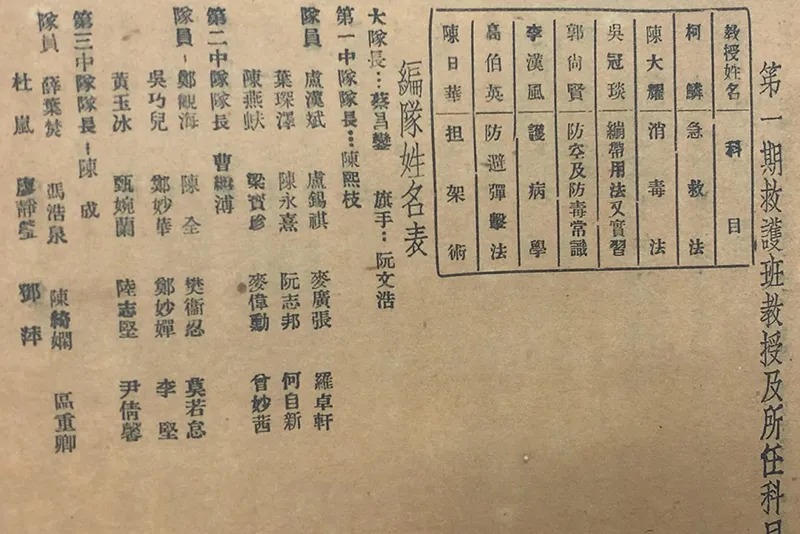 第一期救護班教授及所任科目
教授姓名 科目
柯麟 急救法
陳大耀 消毒法
吳冠琰 繃帶用法又實習
郭尚賢 防空及防毒常識
李漢風 護病學
葛伯英 防避彈擊法
陳日華 担架術
編隊姓名表
大隊長…蔡昌鑾 旗手…阮文浩
第一中隊隊長…陳熙枝
隊員 盧漢斌 盧錫祺 麥廣張 羅卓軒
葉琛澤 陳永熹 阮志邦 何自新
陳燕蚨 梁寶珍 麥偉勳 曾妙茜
第二中隊隊長 曹溥
隊員-鄭觀海 陳全 樊衞忍 莫若怠
吳巧兒 鄭妙華 鄭妙嬋 李堅
黃玉冰 甄婉蘭 陸志堅 尹倩馨
第三中隊隊長-陳成
隊員 薛葉焚 馮浩泉 陳綺嫻 區重卿
杜嵐 廖靜瑩 鄧萍